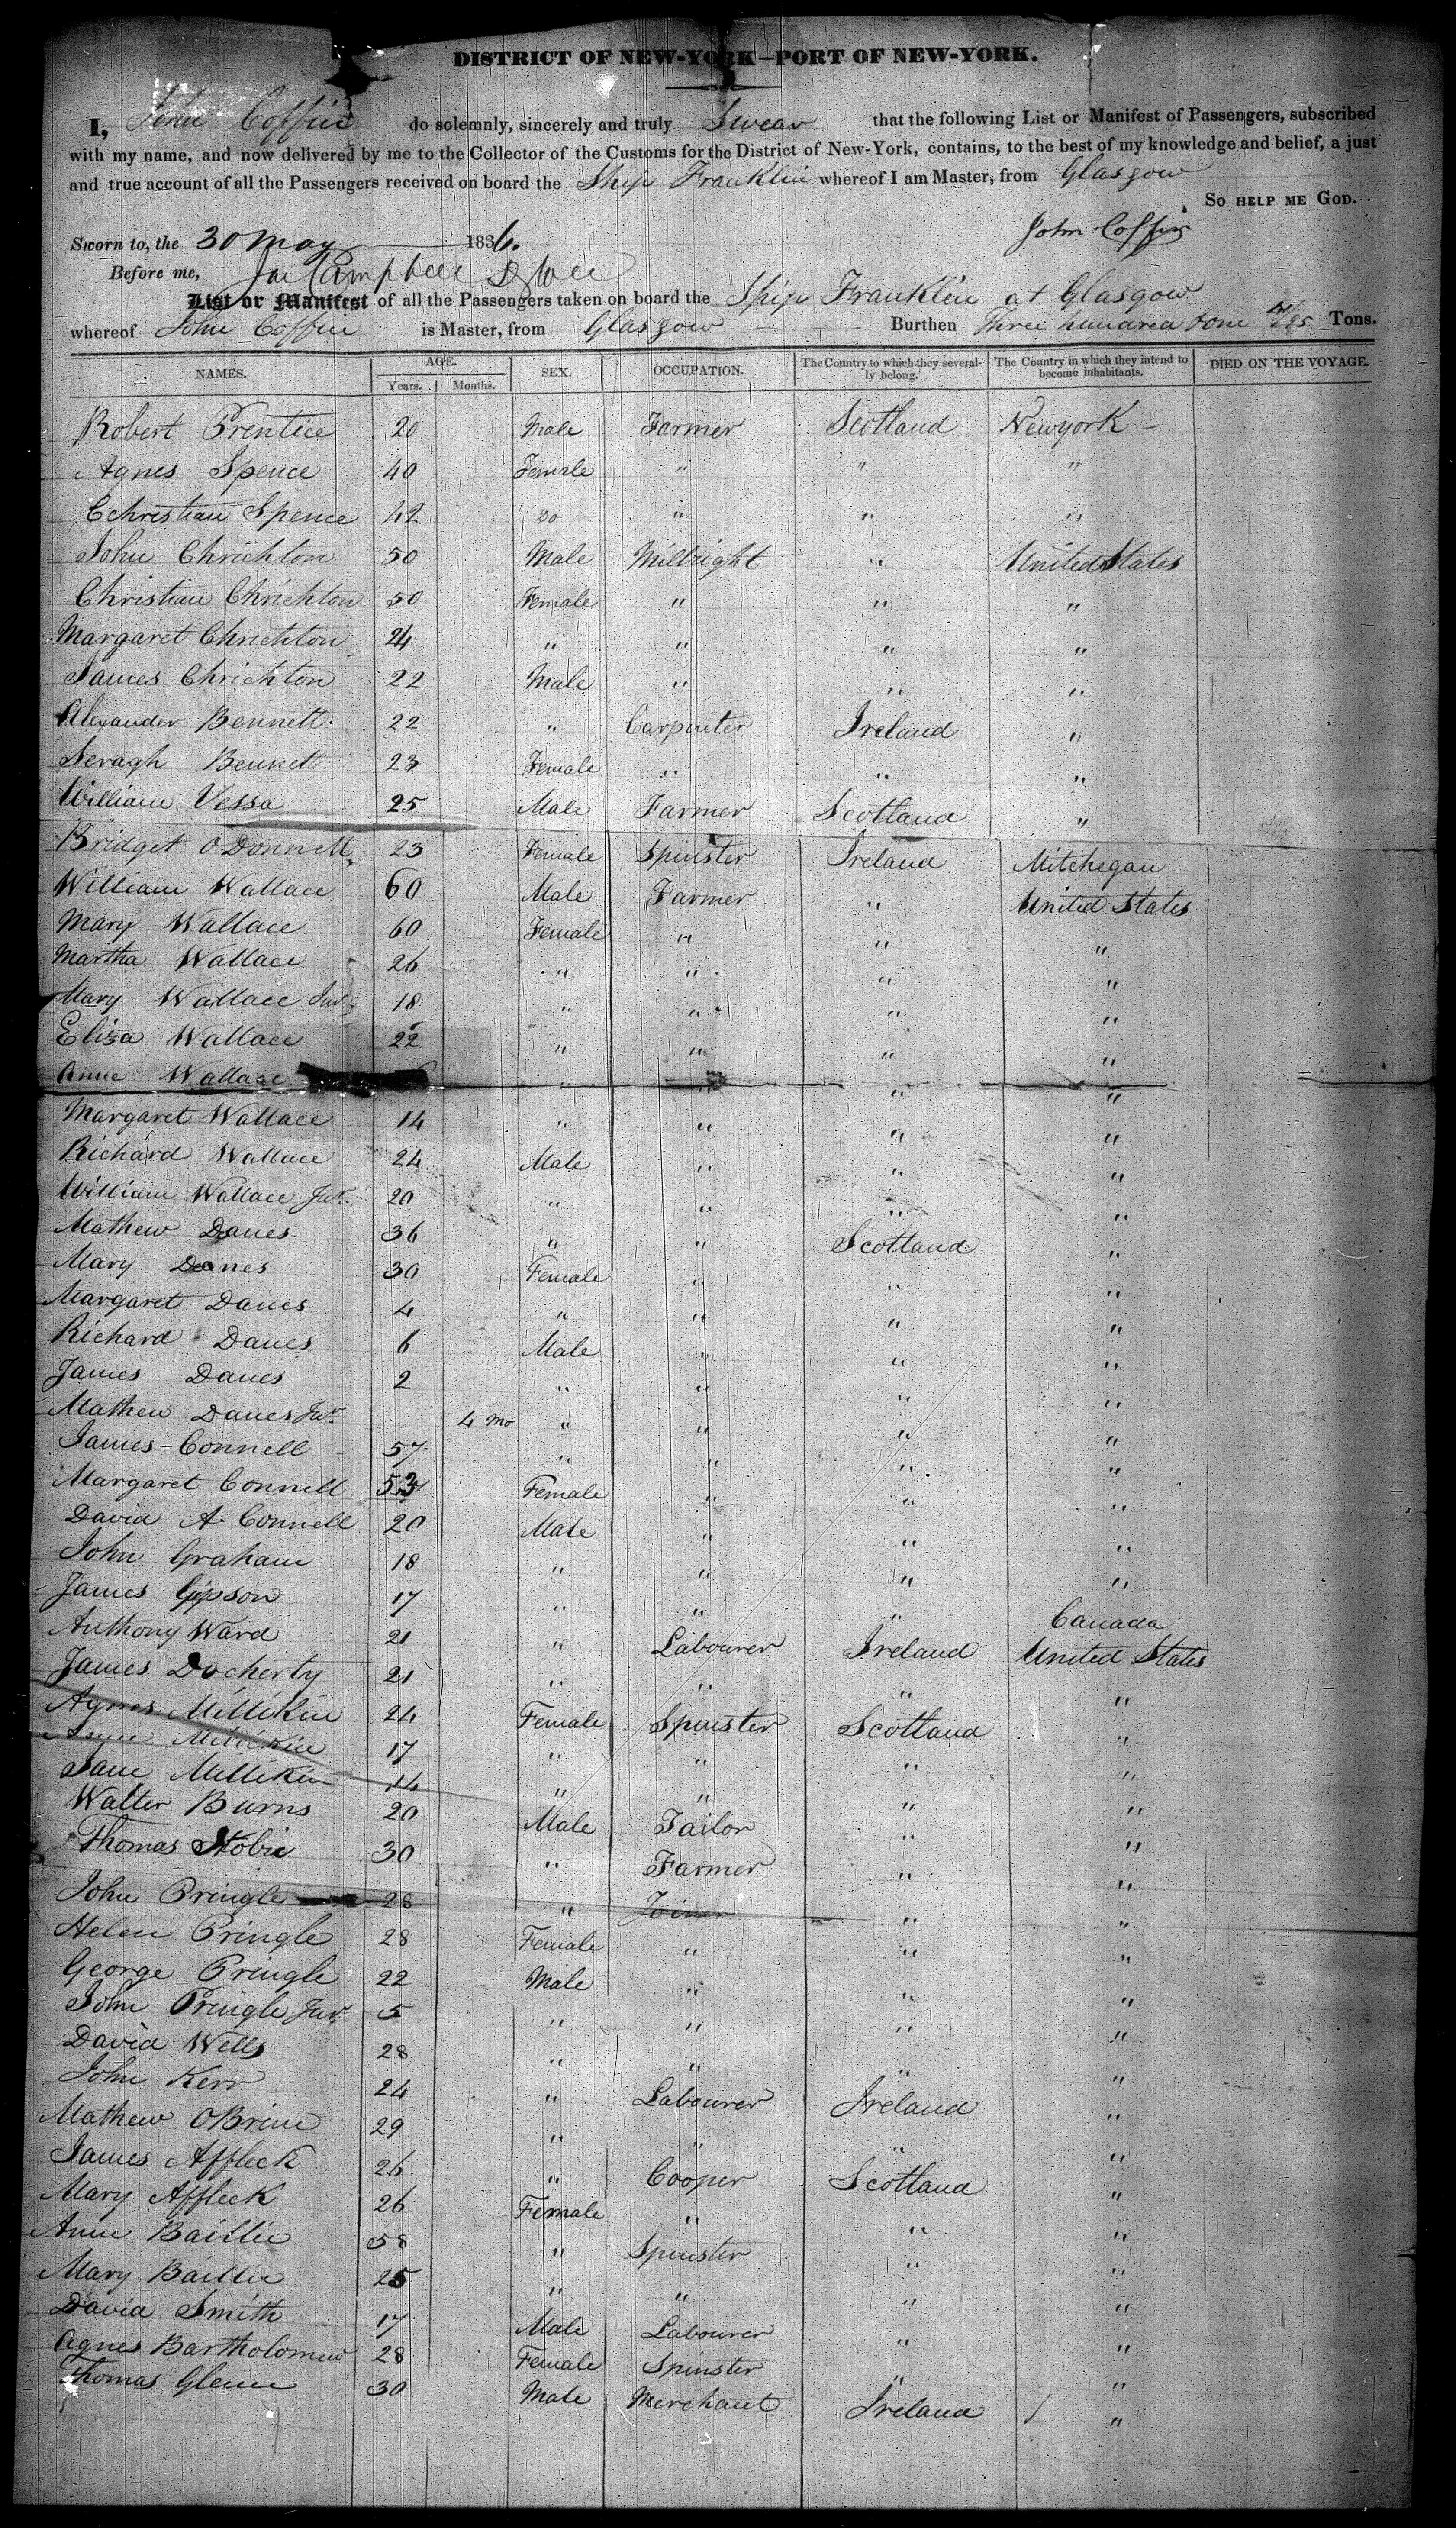 DISTRICT OF NEW-YORK—PORT OF NEW-YORK.
I, John Coffin do solemnly, sincerely and truly Swear that the following List or Manifest of Passengers, subscribed
with my name, and now delivered by me to the Collector of the Customs for the District of New-York, contains, to the best of my knowledge and belief, a just
and true account of all the Passengers received on board the Ship Franklin whereof I am Master, from Glasgow
SO HELP ME GOD.
Sworn to, the 30 May 1836. John Coffin
Before me, Campbell
List or Manifest of all the Passengers taken on board the Ship Franklin at Glasgow
whereof John Coffin is Master, from Glasgow Burthen Three hundred Tons.
NAMES. AGE. SEX. OCCUPATION. The Country to which they severally belong. The Country in which they intend to become inhabitants. DIED ON THE VOYAGE.
Years. Months.
Robert Prentice 20 Male Farmer Scotland Newyork -
Agnes Spence 40 Female " " "
Cchristian Spence 42 Do " " "
John Chrichton 50 Male Millright " United States
Christian Chrichton 50 Female " " "
Margaret Chrichton 24 " " " "
James Chrichton 22 Male " " "
Alexander Bennett 22 " Carpenter Ireland "
Seragh Bennett 23 Female " " "
William Vessa 25 Male Farmer Scotland "
Bridget O Donnell 23 Female Spinster Ireland Mitchegan
William Wallace 60 Male Farmer " United States
Mary Wallace 60 Female " " "
Martha Wallace 26 " " " "
Mary Wallace Junr 18 " " " "
Eliza Wallace 22 " " " "
Anne Wallace " " " "
Margaret Wallace 14 " " " "
Richard Wallace 24 Male " " "
William Wallace Junr 20 " " " "
Mathew Danes 36 " " Scotland "
Mary Danes 30 Female " " "
Margaret Danes 4 " " " "
Richard Danes 6 Male " " "
James Danes 2 " " " "
Mathew Danes Junr 4 mo " " " "
James Connell 57 " " " "
Margaret Connell 53 Female " " "
David A. Connell 20 Male " " "
John Graham 18 " " " "
James Gipson 17 " " " Canada
Anthony Ward 21 " Labourer Ireland United States
James Docherty 21 " " " "
Agnes Millikin 24 Female Spinster Scotland "
Millikin 17 " " " "
Jane Millikin 14 " " " "
Walter Burns 20 Male Tailor " "
Thomas Stobie 30 " Farmer " "
John Pringle 28 " Joiner " "
Helen Pringle 28 Female " " "
George Pringle 22 Male " " "
John Pringle Junr 5 " " " "
David Wells 28 " " " "
John Kerr 24 " Labourer Ireland "
Mathew OBrine 29 " " " "
James Affleck 26 " Cooper Scotland "
Mary Affleck 26 Female " " "
Anne Baillie 58 " Spinster " "
Mary Baillie 25 " " " "
David Smith 17 Male Labourer " "
Agnes Bartholomew 28 Female Spinster " "
Thomas Glenn 30 Male Merchant Ireland "